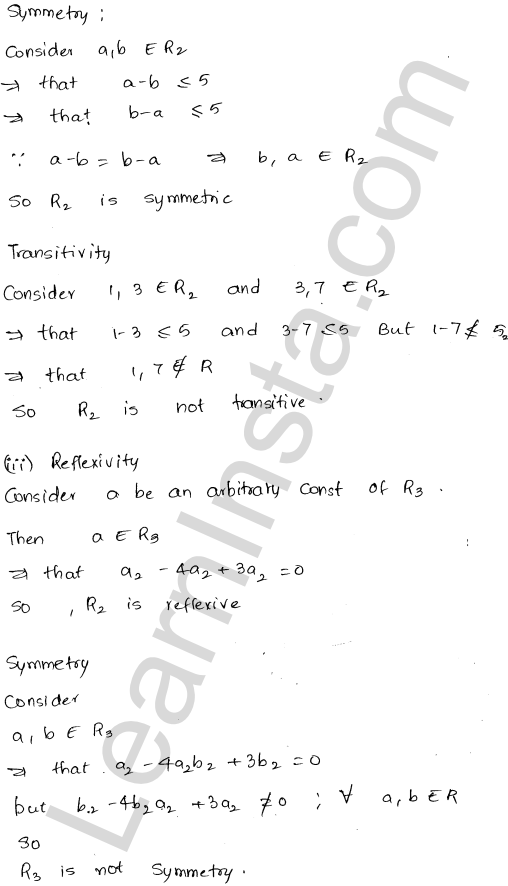 Symmetry :
Consider a,b ∈ R2
⇒ that a-b ≤ 5
⇒ that b-a ≤ 5
∵ a-b = b-a ⇒ b, a ∈ R2
So R2 is symmetric
Transitivity
Consider 1, 3 ∈ R2 and 3,7 ∈ R2
⇒ that 1-3 ≤ 5 and 3-7 ≤ 5 But 1-7 ≰ 5
⇒ that 1, 7 ∉ R
So R2 is not transitive.
(iii) Reflexivity
Consider a be an arbitrary Const of R3 .
Then a ∈ R3
⇒ that a2 - 4a2 + 3a2 = 0
So , R2 is reflexive
Symmetry
Consider
a, b ∈ R3
⇒ that a2 - 4a2b2 + 3b2 = 0
but b2 - 4b2a2 + 3a2 ≠ 0 ; ∀ a,b ∈ R
So
R3 is not symmetry.
LearnInsta.com